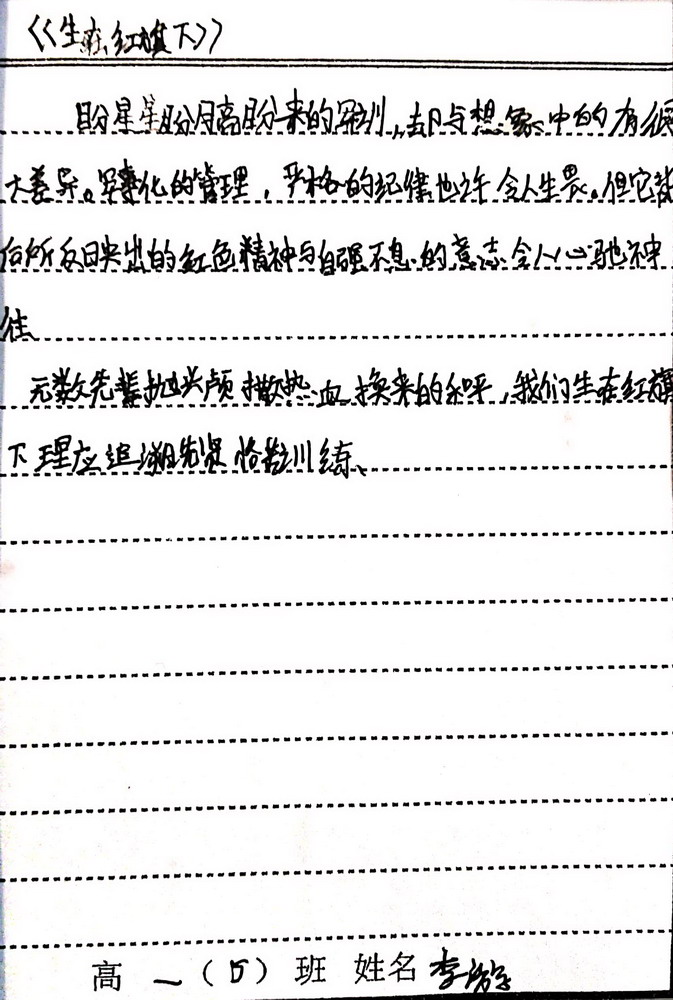 《生在红旗下》
盼星星盼月高盼来的军训,却与想象中的有很
大差异。军事化的管理,严格的纪律也许令人生畏。但它背
后所反映出的红色精神与自强不息的意志令人心驰神
往
无数先辈抛头颅撒热血换来的和平,我们生在红旗
下理应追溯先贤 训练、
高一(5)班 姓名 李